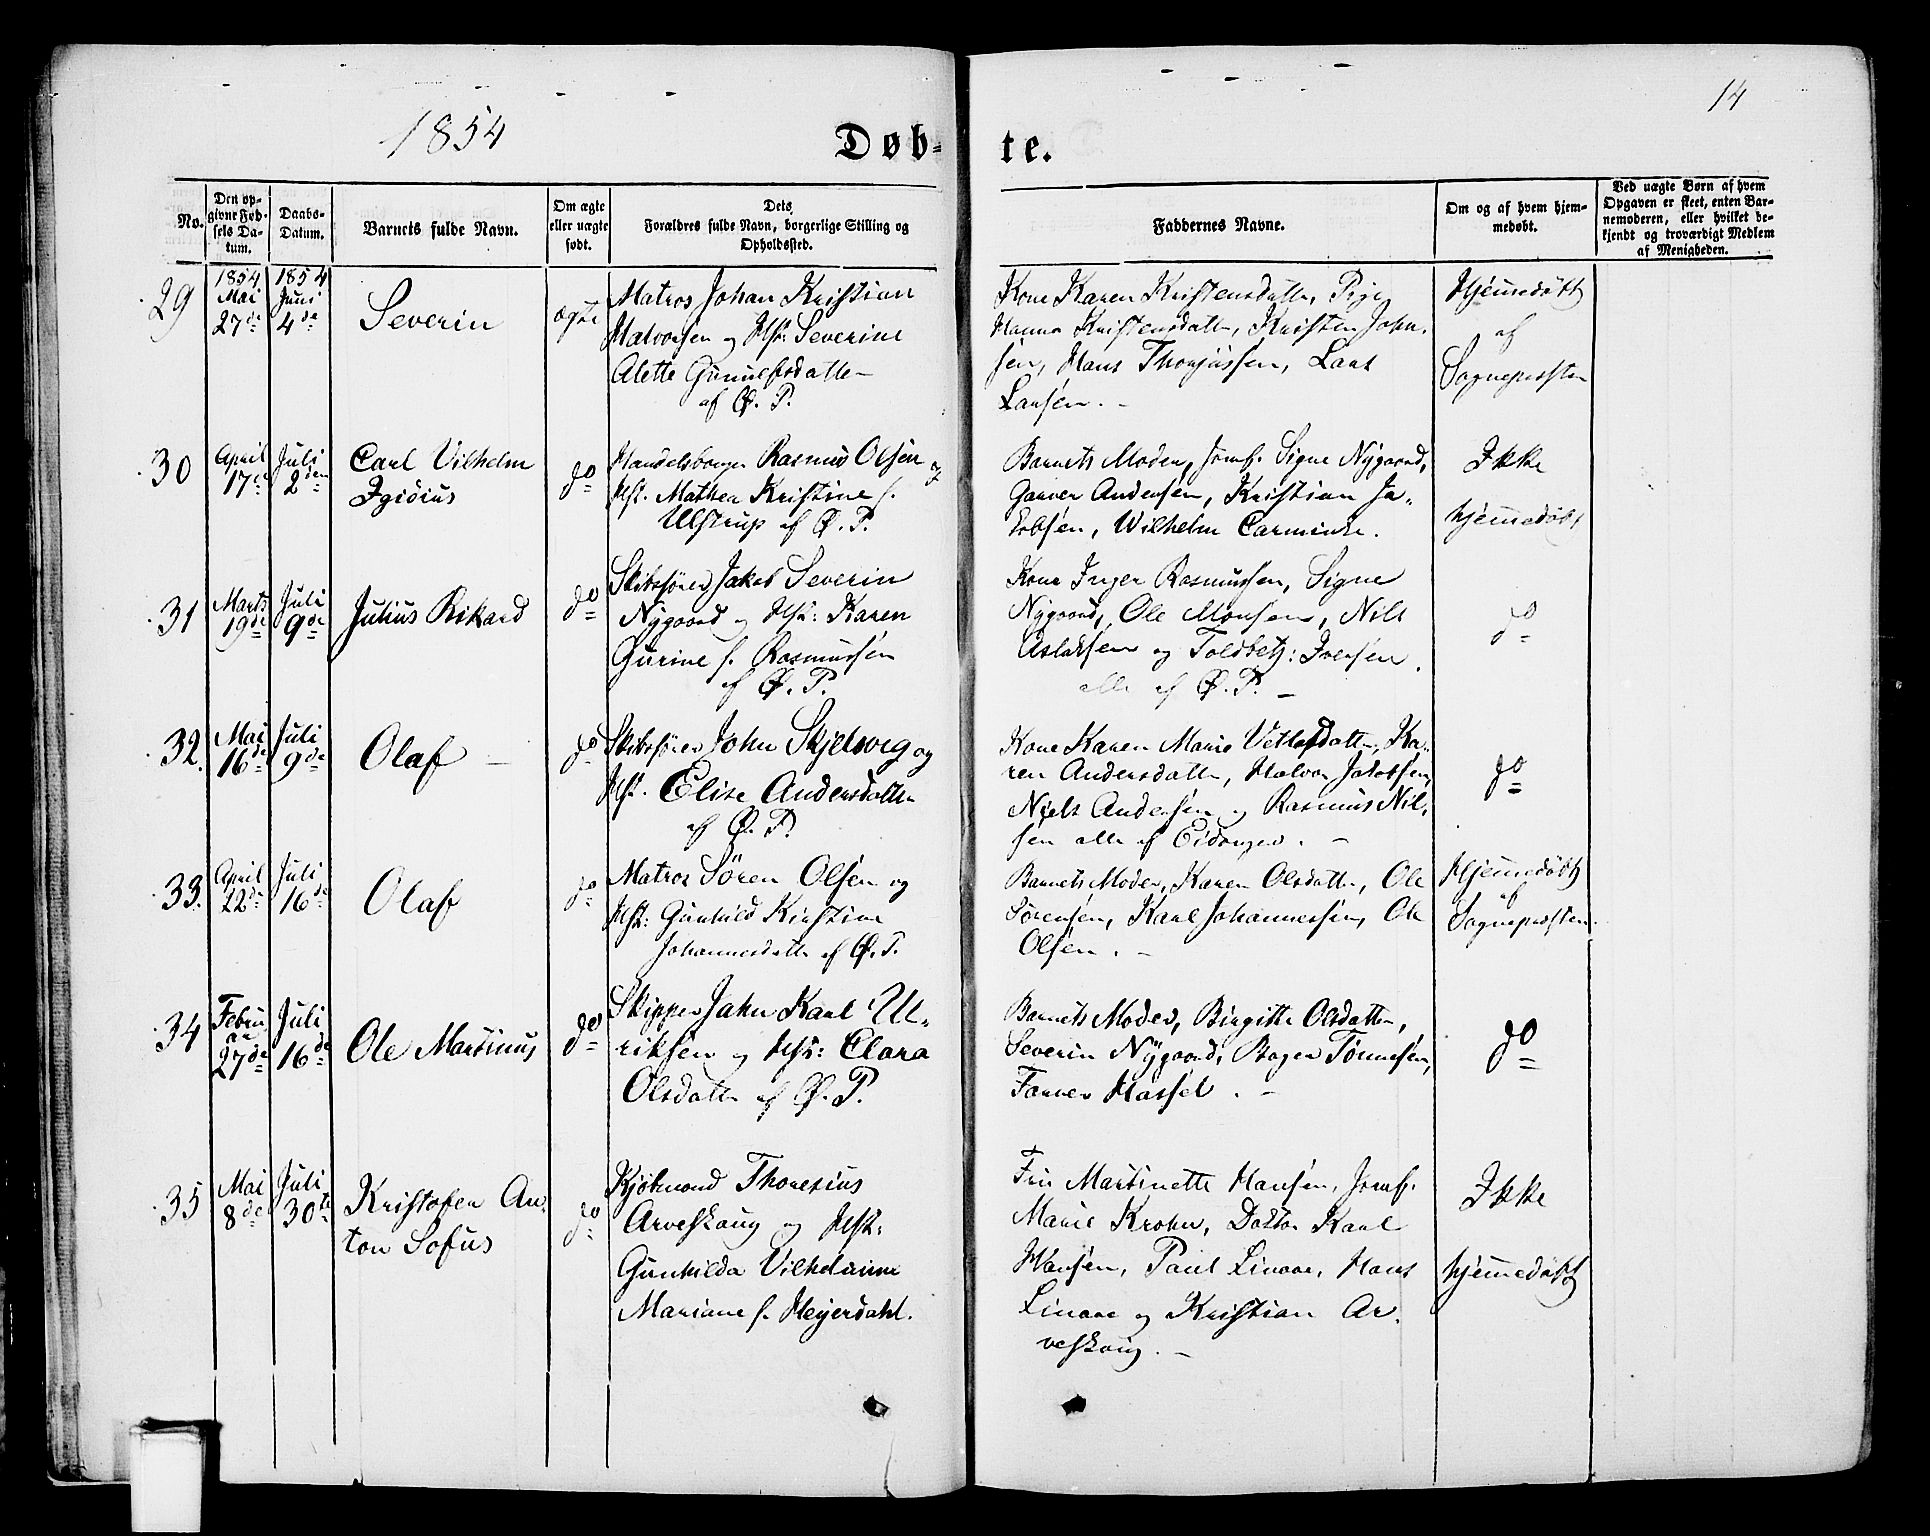 14
1854
Døb-
te.
No.
Den op-
givne Fød-
sels Da-
tum.
Daabs-
Datum.
Barnets fulde Navn.
Om ægte
eller uægte
født.
Dets
Forældres fulde Navn, borgerlige Stilling og
Opholdssted.
Faddernes Navne.
Om og af hvem hjem-
medøbt.
Ved uægte Børn af hvem
Opgaven er skeet, enten Bar-
nemoderen, eller hvilket be-
kjendt og troværdigt Medlem
af Menigheden.
29
1854
Mai
27de
1854
Juni
4de
Severin
ægte
Matros Johan Kristian
Halvorsen og Hst: Severine
Alette Gunulfsdatter
af Ø. P.
Kone Karen Kristensdatter, Pige
Hanna Kristensdatter, Kristen John-
sen, Hans Thorjussen, Lars
Larsen.
Hjemmedøbt
af
Sognepresten
30
April
17de
Juli
2den
Carl Vilhelm
Igidius
do
Handelsborger Rasmus Olsen og
Hst. Mathea Kristine f.
Ulstrup af Ø. P.
Barnets Moder, Jomf. Signe Nygaard,
Garver Andersen, Kristian Ja-
kobsen, Wilhelm Carminke.
Ikke
hjemmedøbt
31
Marts
19de
Juli
9de
Julius Rikard
do
Skibsfører Jakob Severin
Nygaard og Hst: Karen
Gurine f. Rasmussen
af Ø. P.
Kone Inger Rasmussen, Signe
Nygaard, Ole Monsen, Nils
Aslaksen og Toldbetj: Iversen.
alle af Ø. P.
do
32.
Mai
16de
Juli
9de
Olaf
do
Skibsfører John Skjelsvig og
Hst. Elise Andersdatter
af Ø. P.
Kone Karen Marie Vetlesdatter, Ka-
ren Andersdatter, Halvor Jakobsen,
Niels Andersen og Rasmus Nil-
sen alle af Eidanger.
do
33.
April
22de
Juli
16de
Olaf
do
Matros Sören Olsen og
Hst: Gunhild Kirstine
Johannesdatter af Ø. P.
Barnets Moder, Karen Olsdatter, Ole
Sørensen, Karl Johannessen, Ole
Olsen.
Hjemmedøbt
af
Sognepresten
34
Febru
ar
27de
Juli
16de
Ole Martinus
do
Skipper Jahn Karl Ul-
riksen og Hst: Clara
Olsdatter af Ø. P.
Barnets Moder, Birgitte Olsdatter,
Severin Nygaard, Bager Tønnesen,
Farver Hassel.
do
35
Mai
8de
Juli
30te
Kristofer An-
ton Sofus
do
Kjøbmand Thoresius
Arveskoug og Hst:
Gunhilda Vilhelmine
Mariane f. Heyerdahl.
Fru Martinette Hansen, Jomf.
Marie Krohn, Doktor Karl
Hansen, Paul Linaae, Hans
Linaae og Kristian Ar-
veskoug.
Ikke
hjemmedøbt